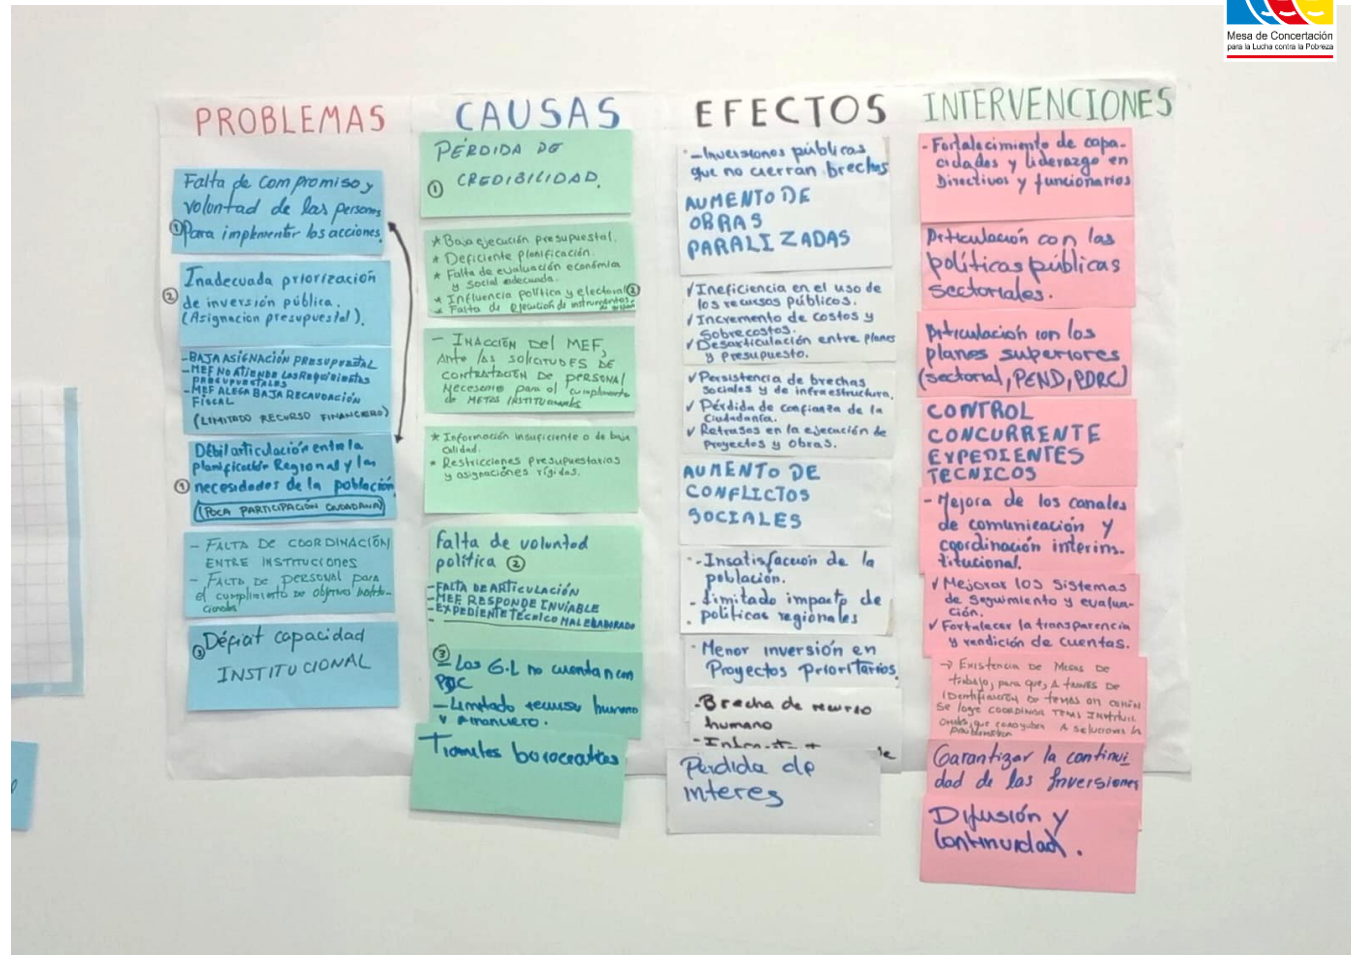 Mesa de Concertación
para la Lucha contra la Pobreza
PROBLEMAS
Falta de compromiso y
voluntad de las personas
① Para implementar las acciones.
Inadecuada priorización
② de inversión pública.
(Asignacion presupuestal).
- BAJA ASIGNACIÓN PRESUPUESTAL
- MEF NO ATIENDE LAS REQUERIMIENTOS
PRESUPUESTALES
- MEF ALEGA BAJA RECAUDACIÓN
FISCAL
(LIMITADO RECURSO FINANCIERO)
Débil articulación entre la
planificación Regional y las
① necesidades de la población
(POCA PARTICIPACIÓN CIUDADANA)
- FALTA DE COORDINACIÓN
ENTRE INSTITUCIONES
- FALTA DE PERSONAL para
el cumplimiento de objetivos
③ Déficit capacidad
INSTITUCIONAL
CAUSAS
PÉRDIDA DE
① CREDIBILIDAD.
* Baja ejecución presupuestal.
* Deficiente planificación.
* Falta de evaluación económica
y social adecuada.
* Influencia política y electoral ②
* Falta de ejecución de instrumentos
- INACCIÓN DEL MEF,
Ante las solicitudes de
contratación de personal
Necesario para el cumplimiento
de METAS INSTITUCIONALES
* Información insuficiente o de baja
calidad.
* Restricciones presupuestarias
y asignaciones rígidas.
falta de voluntad
política ②
- FALTA DE ARTICULACIÓN
- MEF RESPONDE INVIABLE
- EXPEDIENTE TÉCNICO MAL ELABORADO
③
- Los G.L no cuentan con
PDC
- Limitado recurso humano
y financiero.
Tramites borocraticos
EFECTOS
- Inversiones públicas
que no cierran brechas
AUMENTO DE
OBRAS
PARALIZADAS
✓ Ineficiencia en el uso de
los recursos públicos.
✓ Incremento de costos y
sobrecostos.
✓ Desarticulación entre planes
y presupuesto.
✓ Persistencia de brechas
sociales y de infraestructura.
✓ Pérdida de confianza de la
ciudadanía.
✓ Retrasos en la ejecución de
Proyectos y obras.
AUMENTO DE
CONFLICTOS
SOCIALES
- Insatisfacción de la
población.
- Limitado impacto de
políticas regionales
- Menor inversión en
Proyectos Prioritarios.
- Brecha de recurso
humano
Perdida de
interes
INTERVENCIONES
- Fortalecimiento de capa-
cidades y liderazgo en
Directivos y funcionarios
Articulación con las
políticas públicas
sectoriales.
Articulación con los
planes superiores
(sectorial, PEND, PDRC)
CONTROL
CONCURRENTE
EXPEDIENTES
TECNICOS
- Mejora de los canales
de comunicación y
coordinación interins-
titucional.
✓ Mejorar los sistemas
de seguimiento y evalua-
ción.
✓ Fortalecer la transparencia
y rendición de cuentas.
→ Existencia de MESAS DE
trabajo, para que, A través de
identificación de temas en común
Se logre coordinar TEMAS
A solucionar la
problemática
Garantizar la continui
dad de las Inversiones
Difusión y
Continuidad.